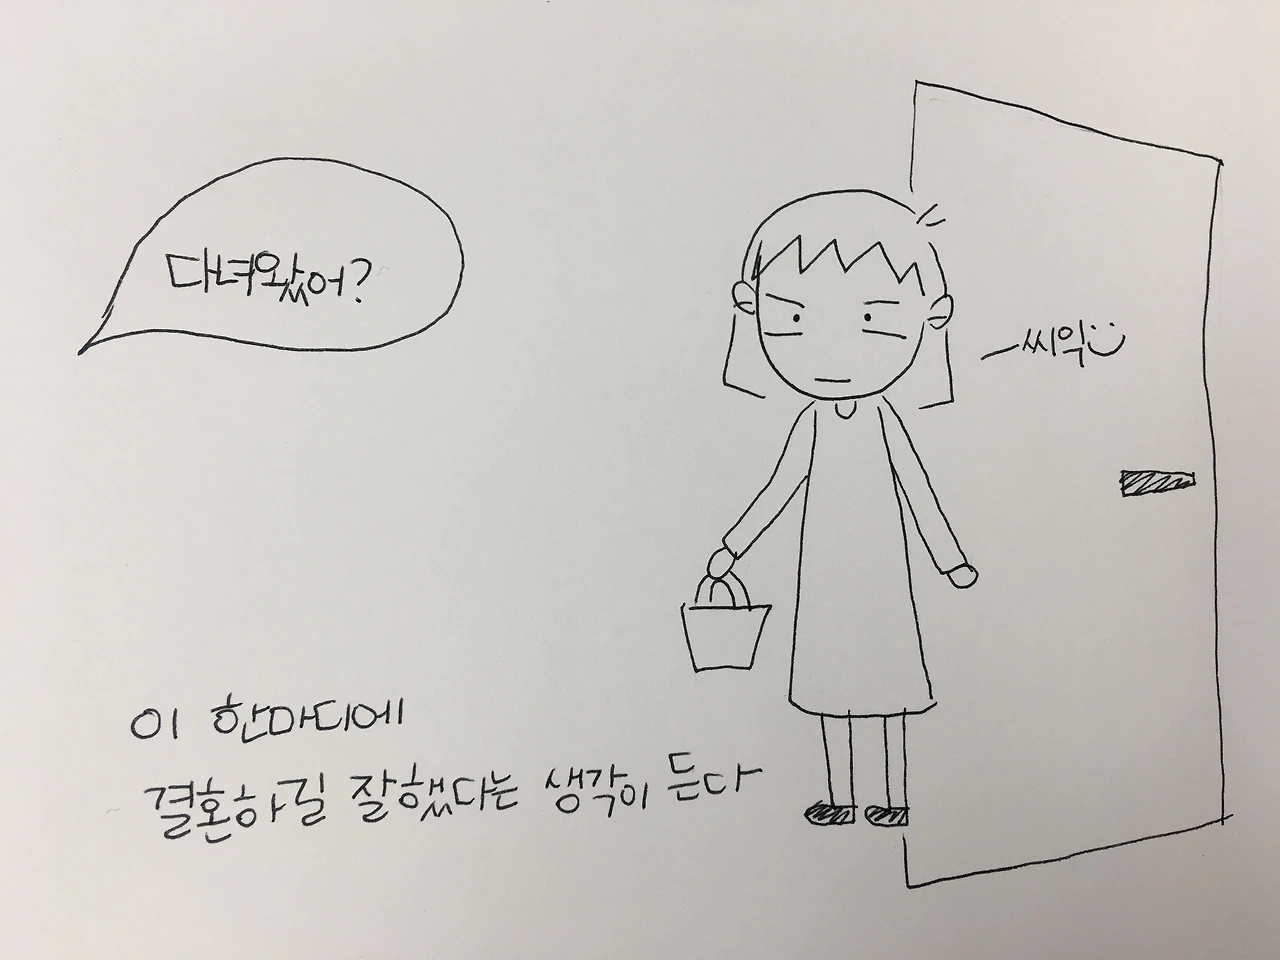 다녀왔어?
씨익
이 한마디에
결혼하길 잘했다는 생각이 든다